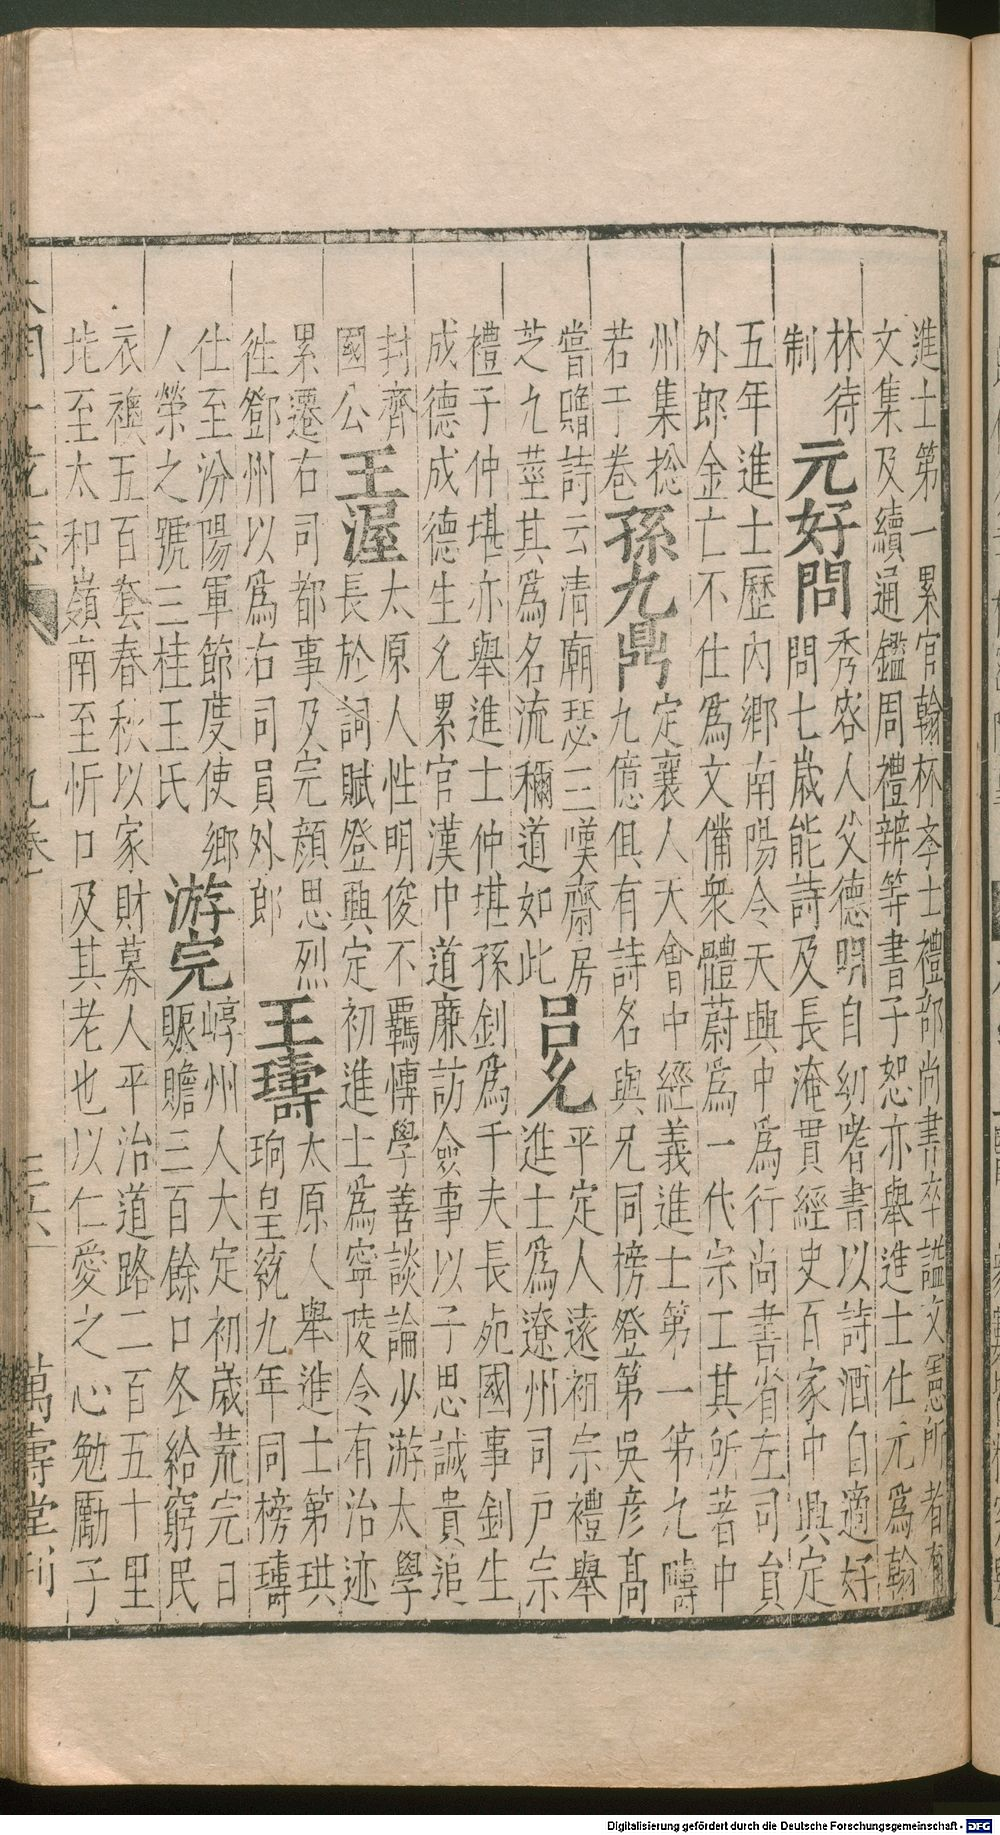 進士第一累官翰林李士禮部尚書卒謚文憲所著有
文集及續通鑑周禮辨等書子恕亦舉進士仕元為翰
林待
制
元好問
秀容人父德明自幼嗜書以詩酒自適好
問七歲能詩及長淹貫經史百家中興定
五年進士歷內鄉南陽令天興中為行尚書省左司員
外郎金亡不仕為文備衆體蔚為一代宗工其所著中
州集捴
若干卷
孫九鼎
定襄人天會中經義進士第一弟九疇
九億俱有詩名與兄同榜登第吳彥高
嘗贈詩云清廟瑟三嘆齋房
芝九莖其為名流稱道如此
呂允
平定人遠祖宗禮舉
進士為遼州司戶宗
禮子仲堪亦舉進士仲堪孫釗為千夫長死國事釗生
成德成德生允累官漢中道廉訪僉事以子思誠貴追
封齊
國公
王渥
太原人性明俊不羈博學善談論少游太學
長於詞賦登興定初進士為寧陵令有治迹
累遷右司都事及完顏思烈
徃鄧州以為右司員外郎
王璹
太原人舉進士第珙
珦皇統九年同榜璹
仕至汾陽軍節度使鄉
人榮之號三桂王氏
游完
崞州人大定初歲荒完日
賑贍三百餘口冬給窮民
衣襖五百套春秋以家財募人平治道路二百五十里
北至太和嶺南至忻口及其老也以仁愛之心勉勵子
大明一統志 十九卷 三六 萬壽堂刊
Digitalisierung gefördert durch die Deutsche Forschungsgemeinschaft - DFG